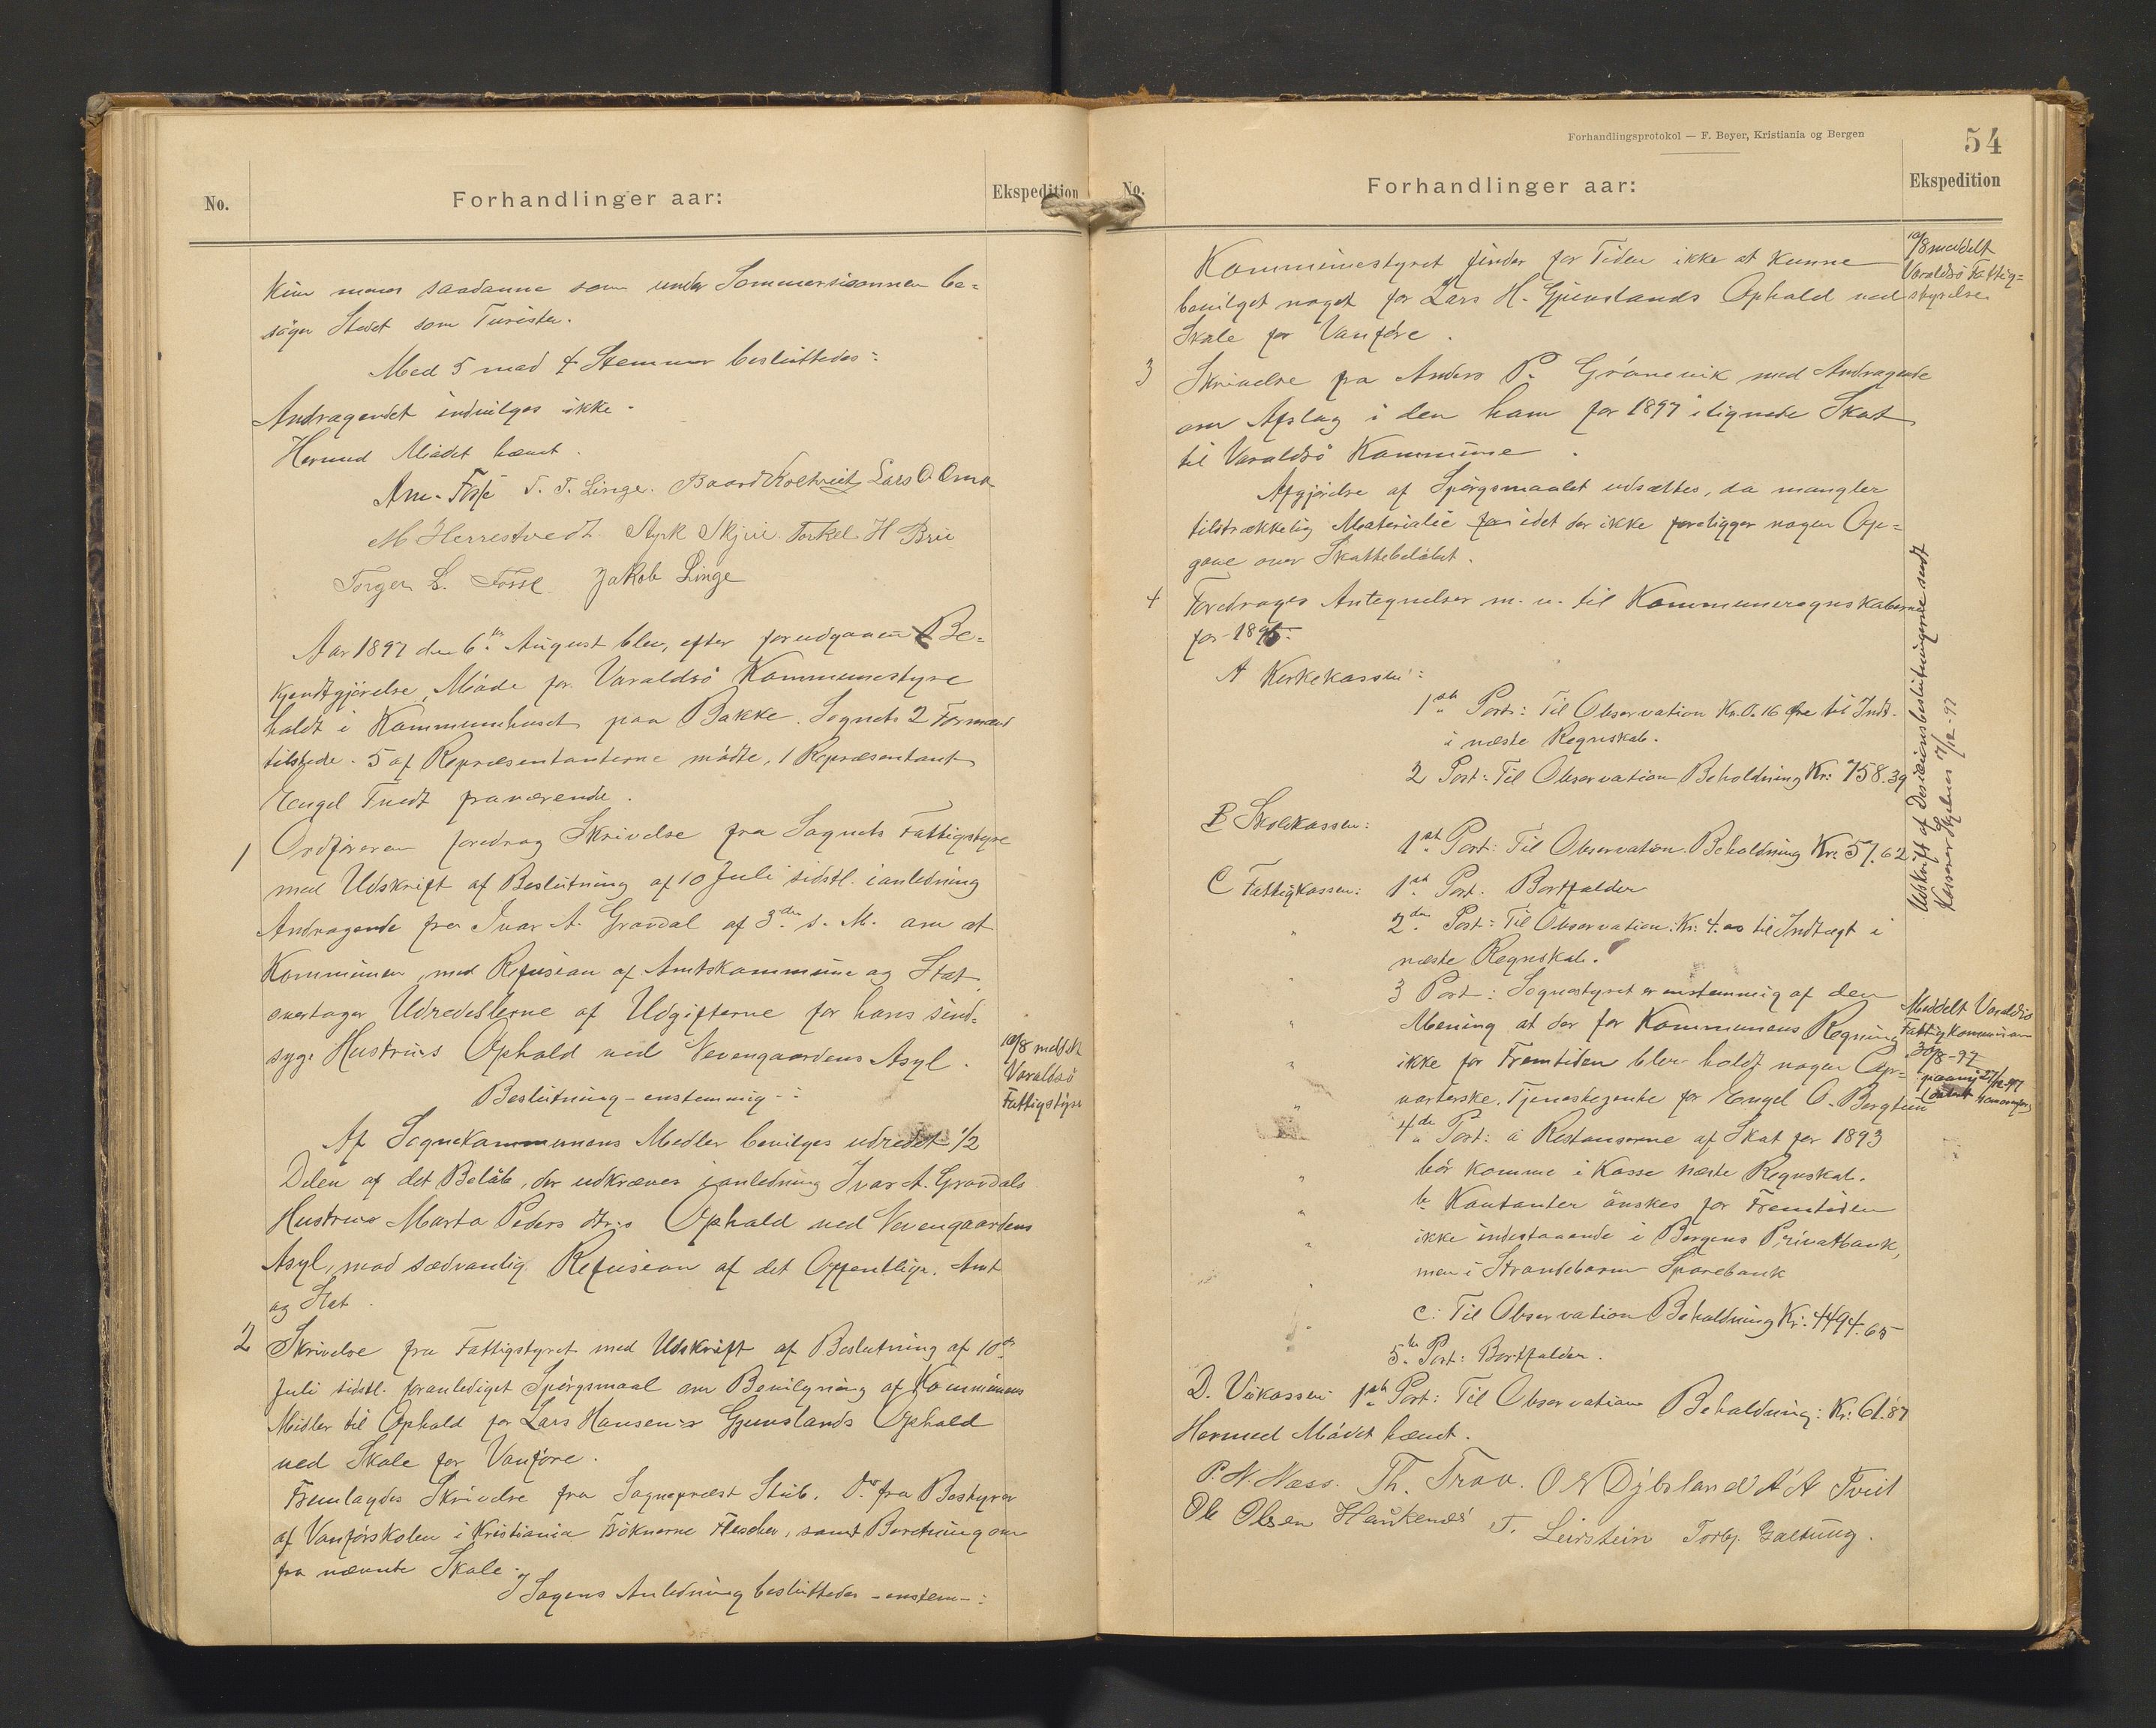 No.
Forhandlinger aar:
Ekspedition
kun menes saadanne som under Sommersæsonnen be-
søger Stedet som Turister.
Med 5 mod 4 Stemmer besluttedes:
Andragendet indvilges ikke.
Hermed Mödet hævet.
Am. Fosse T. T. Linge. Baard Koltveit Lars O Oma
M Herrestvedt. Styrk Skjeie. Torkel H Brue
Torger L. Fosse. Jakob Linge
Aar 1897 den 6te August blev, efter forudgaaen Be-
kjendtgjørelse, Möde for Varaldsö Kommunestyre
holdt i Kommunehuset paa Bakke. Sognets 2 Formænd
tilstede. 5 af Repræsentanterne mödte, 1 Repræsentant
Engel Tvedt fraværende.
1 Ordföreren foredrog Skrivelse fra Sognets Fattigstyre
med Udskrift af Beslutning af 10 Juli sidstl. ianledning
Andragende fra Ivar A. Gravdal af 3die s. M. om at
Kommunen, med Refusion af Amtskommune og Stat
overtager Udredelserne af Udgifterne for hans sind-
syge Hustrus Ophold ved Nevengaardens Asyl.
10/8 meddelt
Varaldsö
Fattigstyre
Beslutning - enstemmig -:
Af Sognekommunens Medler bevilges udredet 1/2
Delen af det Belöb, der udkræves ianledning Ivar A. Gravdals
Hustrus Marta Peders dtr.s Ophold ved Nevengaardens
Asyl, mod sædvanlig Refusion af det Offentlige, Amt
og Stat.
2 Skrivelse fra Fattigstyret med Udskrift af Beslutning af 10de
Juli sidstl. foranlediget Spörgsmaal om Bevilgning af Kommunens
Midler til Ophold for Lars Hansen's Gjuvslands Ophold
ved Skole for Vanföre.
Fremlagdes Skrivelse fra Sognepræst Stub. Do fra Bestyrer
af Vanförskolen i Kristiania Fröknerne Flescher, samt Beretning om
fra nævnte Skole.
I Sagens Anledning besluttedes - enstem -:
Forhandlingsprotokol — F. Beyer, Kristiania og Bergen
54
No.
Forhandlinger aar:
Ekspedition
Kommunestyret finder for Tiden ikke at kunne
bevilget noget for Lars H. Gjuvslands Ophold ved
Skole for Vanföre.
10/8 meddelt
Varaldsö Fattig-
styrelse
3 Skrivelse fra Anders P. Grönevik med Andragende
om Afslag i den ham for 1897 ilignede Skat
til Varaldsö Kommune.
Afgjörelse af Spörgsmaalet udsættes, da mangler
tilstrækkelig Materialie for idet der ikke foreligger nogen Op-
gave over Skattebelöbet.
4 Foredrages Antegnelser m. v. til Kommuneregnskaberne
for 1895:
A Kirkekassen:
1ste Post: Til Observation Kr. 0.16 öre til Indt.
i næste Regnskab.
2 Post: Til Observation Beholdning Kr: 758.39
B Skolekassen:
1st Post: Til Observation. Beholdning Kr: 57.62
C Fattigkassen: 1st Post. Bortfalder
" 2den Post: Til Observation: Kr: 4.00 til Indtægt i
næste Regnskab.
" 3 Post: Sognestyret er enstemmig af den
" Mening at der for Kommunens Regning
" ikke for Fremtiden blev holdt nogen Op-
" varterske, Tjenestejente for Engel O. Bergtun
4de Post: a Restanserne af Skat for 1893
" bör komme i Kasse næste Regnskab.
" b Kontanter önskes for Fremtiden
" ikke indestaaende i Bergens Privatbank,
" men i Strandebarm Sparebank
c: Til Observation Beholdning Kr: 4494.65
5te Post: Bortfalder.
D. Veikassen 1ste Post: Til Observation Beholdning: Kr: 61.87
Hermed Mödet hævet.
P. N. Næss. Th. Trov. O N Djbsland A A Tveit
Ole Olsen Haukenes T. Leirstein Torbj. Galtung.
Udskrift af Desisionsbeslutningerne sendt
Kasserer 17/12-97
Meddelt Varaldsö
Fattigkommision
30/8-97
27/12-97